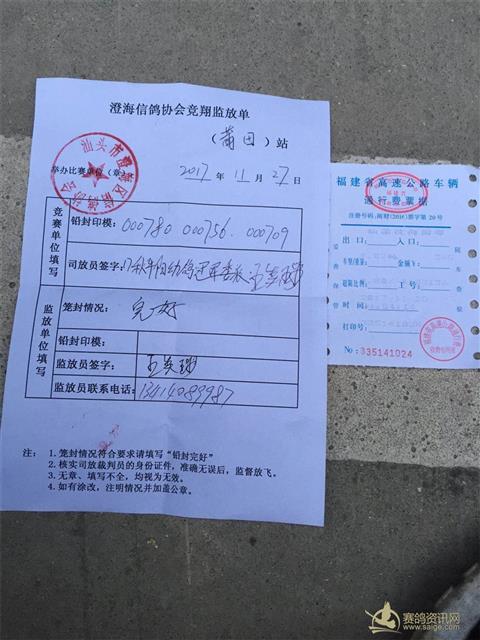 澄海信鸽协会竞翔监放单
（莆田）站
举办比赛单位（章）
2017 年 11 月 27 日
汕头市澄海区信鸽协会
竞赛单位填写
铅封印模: 000780 000756. 000709
司放员签字:
监放单位填写
笼封情况: 完好
铅封印模:
监放员签字:
监放员联系电话: 13414089987
注: 1. 笼封情况符合要求请填写“铅封完好”
2. 核实司放裁判员的身份证件，准确无误后，监督放飞。
3. 无章、填写不全，均视为无效。
4. 如有涂改，注明情况并加盖公章。
福建省高速公路车辆
通行费票据
出口: 入口:
金额￥:
工号:
时间:
打印号:
No: 335141024
赛鸽资讯网
www.saige.com